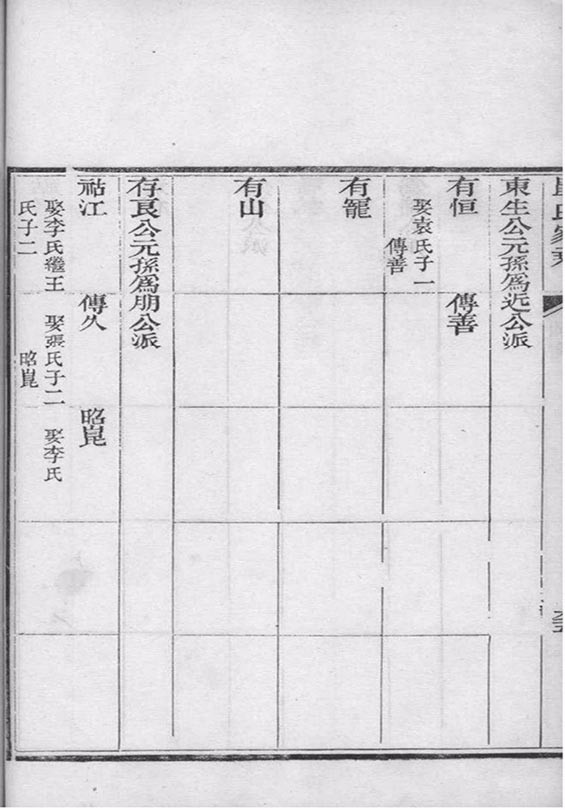 東生公元孫為近公派
有恒
娶袁氏子一
傳善
傳善
有寵
有山
存良公元孫為朋公派
祜江
娶李氏繼王
氏子二
傳久
娶張氏子二
昭崑
昭崑
娶李氏